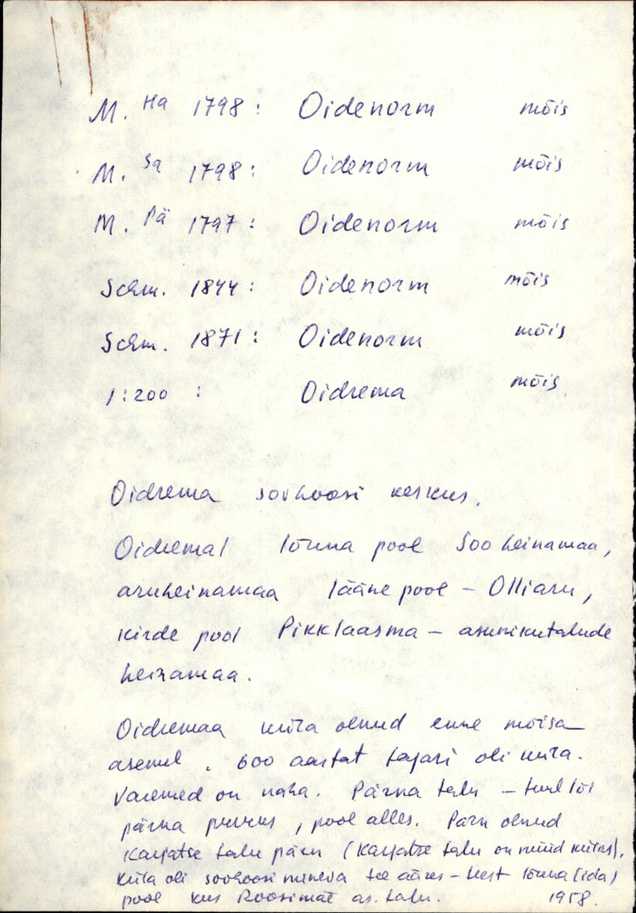 M. Ha 1798: Oidenorm mõis
M. Sa 1798: Oidenorm mõis
M. Pä 1797: Oidenorm mõis
Schm. 1844: Oidenorm mõis
Schm. 1871: Oidenorm mõis
1:200 : Oidrema mõis
Oidrema sovhoosi keskus.
Oidremal lõuna pool Sooheinamaa,
aruheinamaa lääne pool – Olliaru,
kirde pool Pikklaasma – asunikutalude
heinamaa.
Oidremaa küla olnud enne mõisa
asemel. 600 aastat tagasi oli küla.
Varemed on näha. Pärna talu – tuul lõi
pärna puruks, pool alles. Pärn olnud
Karjatse talu pärn (Karjatse talu on nüüd külas).
Küla oli sovhoosi mineva tee ääres – teest lõuna (ida)
pool kus Roosimäe as. talu. 1958.